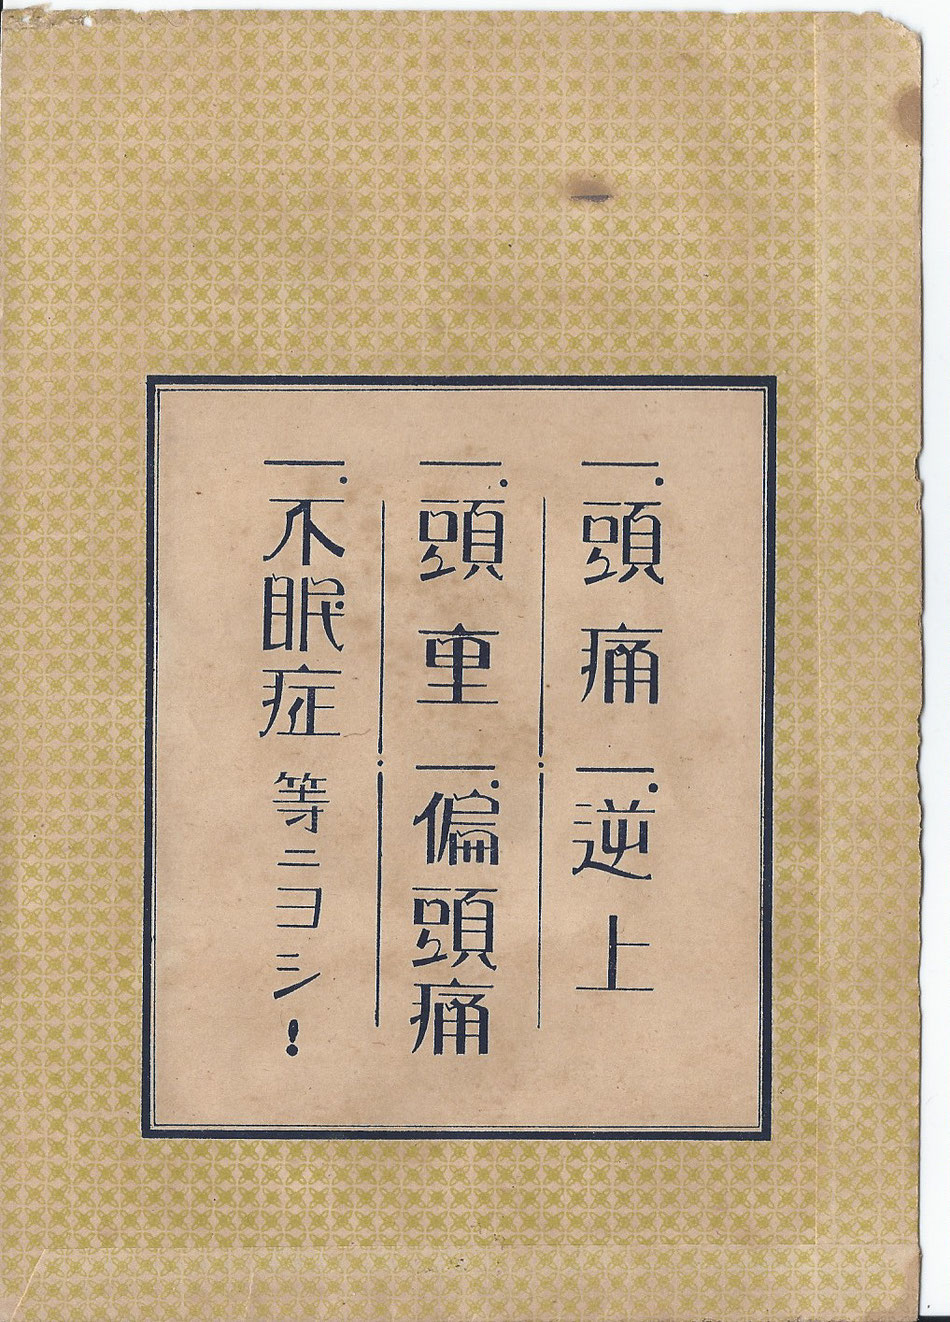 一.頭痛 一.逆上
一.頭重 一.偏頭痛
一.不眠症 等ニヨシ!